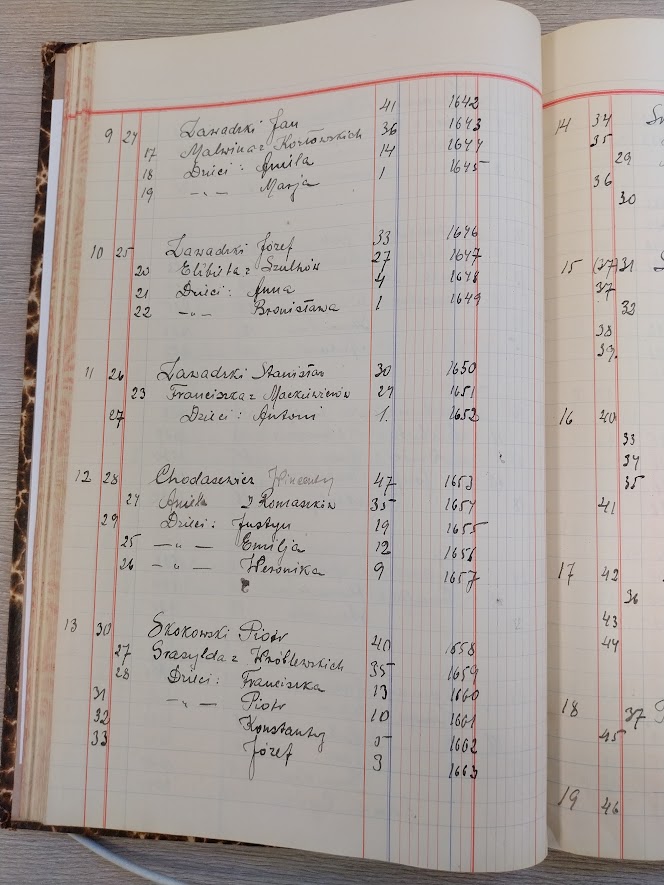 9 24 Zawadzki Jan 41 1642
17 Malwina z Kozłowskich 36 1643
18 Dzieci: Amila 14 1644
19 -„- Marja 1 1645
10 25 Zawadzki Józef 33 1646
20 Elżbieta z Szulków 27 1647
21 Dzieci: Anna 4 1648
22 -„- Bronisława 1 1649
11 26 Zawadzki Stanisław 30 1650
23 Franciszka z Mackiewiczów 24 1651
27 Dzieci: Antoni 1. 1652
12 28 Chodasewicz Wincenty 47 1653
24 Amilia z Romaszków 35 1654
29 Dzieci: Justyn 19 1655
25 -„- Emilja 12 1656
26 -„- Weronika 9 1657
13 30 Skokowski Piotr 40 1658
27 Grazylda z Wróblewskich 35 1659
28 Dzieci: Franciszka 13 1660
31 -„- Piotr 10 1661
32 Konstanty 5 1662
33 Józef 3 1663
14 34
35
29
36
30
15 (37) 31
37
32
38
39.
16 40
33
34
35
41
17 42
36
43
44
18 37
45
19 46